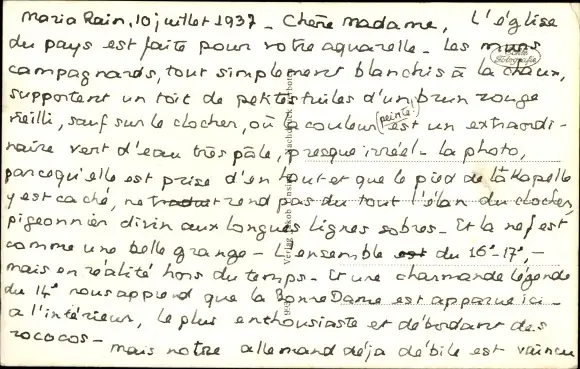 Maria Rain, 10 juillet 1937 - Chère Madame, L'église
du pays est faite pour votre aquarelle - Les murs
campagnards, tout simplement blanchis à la chaux,
supportent un toit de petites tuiles d'un brun rouge
vieilli, sauf sur le clocher, où la couleur (peinte!) est un extraordi-
naire vert d'eau très pâle, presque irréel - la photo,
parce qu'elle est prise d'en haut et que le pied de la Kapelle
y est caché, ne traduit rend pas du tout l'élan du clocher,
pigeonnier divin aux longues lignes sobres - Et la nef est
comme une belle grange - L'ensemble est du 16e-17e, -
mais en réalité hors du temps - Et une charmante légende
du 14e nous apprend que la Bonne Dame est apparue ici -
a l'intérieur, le plus enthousiaste et débordant des
rococos -
mais notre allemand déjà débile est vaincu
Echte
Fotografie